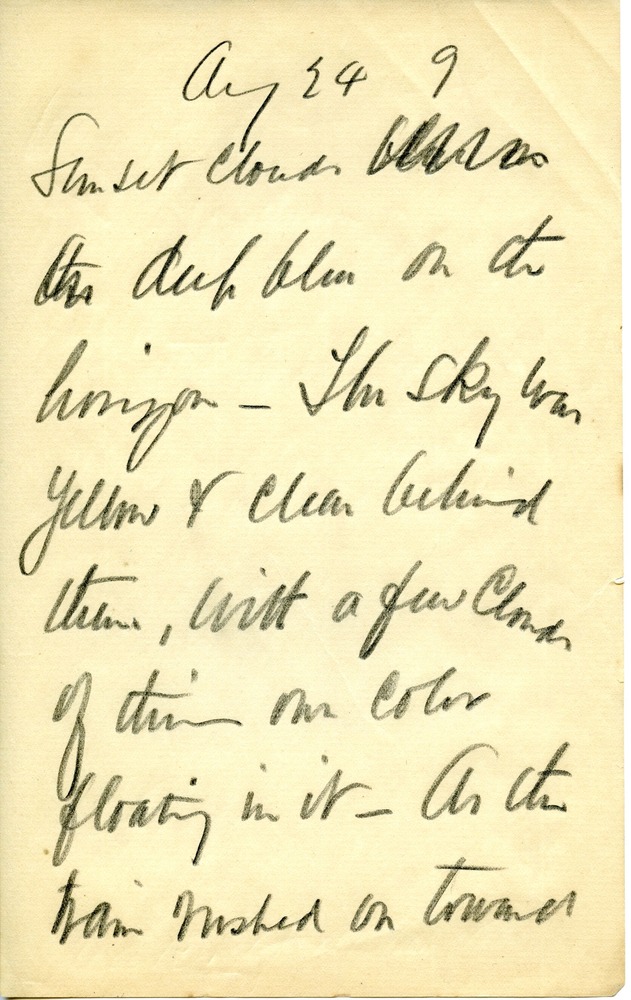 Aug 24 9
Sunset clouds
this deep blue on the
horizon – The sky was
yellow & clear behind
them, with a few clouds
of their own color
floating in it – As the
train rushed on toward